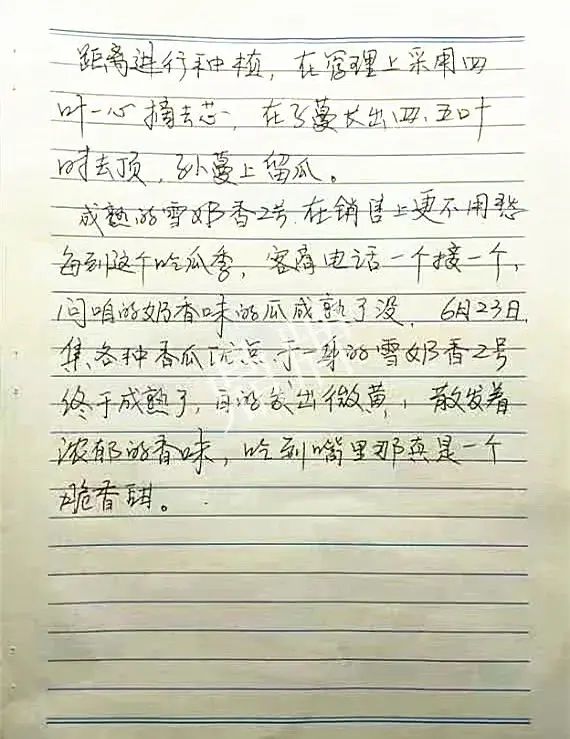 距离进行种植，在管理上采用四
叶一心摘去芯，在子蔓长出四、五叶
时去顶，孙蔓上留瓜。
成熟的雪奶香2号在销售上更不用愁
每到这个吃瓜季，客商电话一个接一个，
问咱的奶香味的瓜成熟了没，6月23日，
集各种香瓜优点于一身的雪奶香2号
终于成熟了，白的发出微黄，散发着
浓郁的香味，吃到嘴里那真是一个
脆香甜。